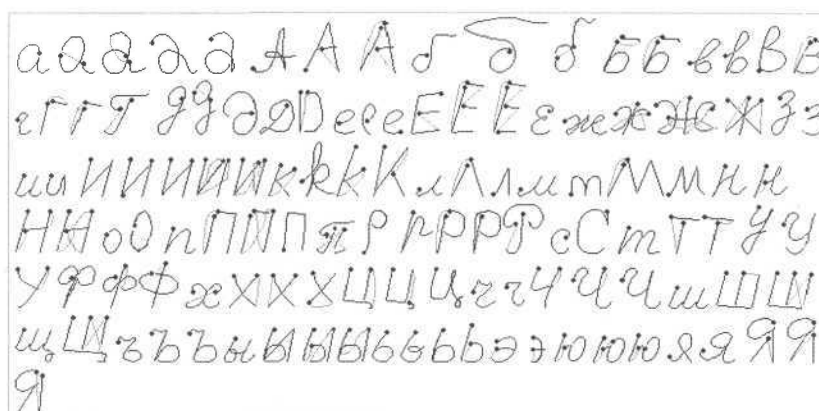 а а а а а А А А б б б Б Б в в В В
г Г г Т д д Д Д D е е е Е Е Е Е ж ж Ж Ж З З
и и И И И И И к k k К л Л л м т М М н н
Н Н о О п П П П п Р р Р Р Р с С т Т Т У У
У Ф ф Ф х Х Х Х Ц Ц Ц ч ч Ч Ч Ч ш Ш Ш
щ Щ ъ Ъ Ъ ы Ы Ы Ы ь ь Ь Ь э э ю ю ю я я Я Я
Я